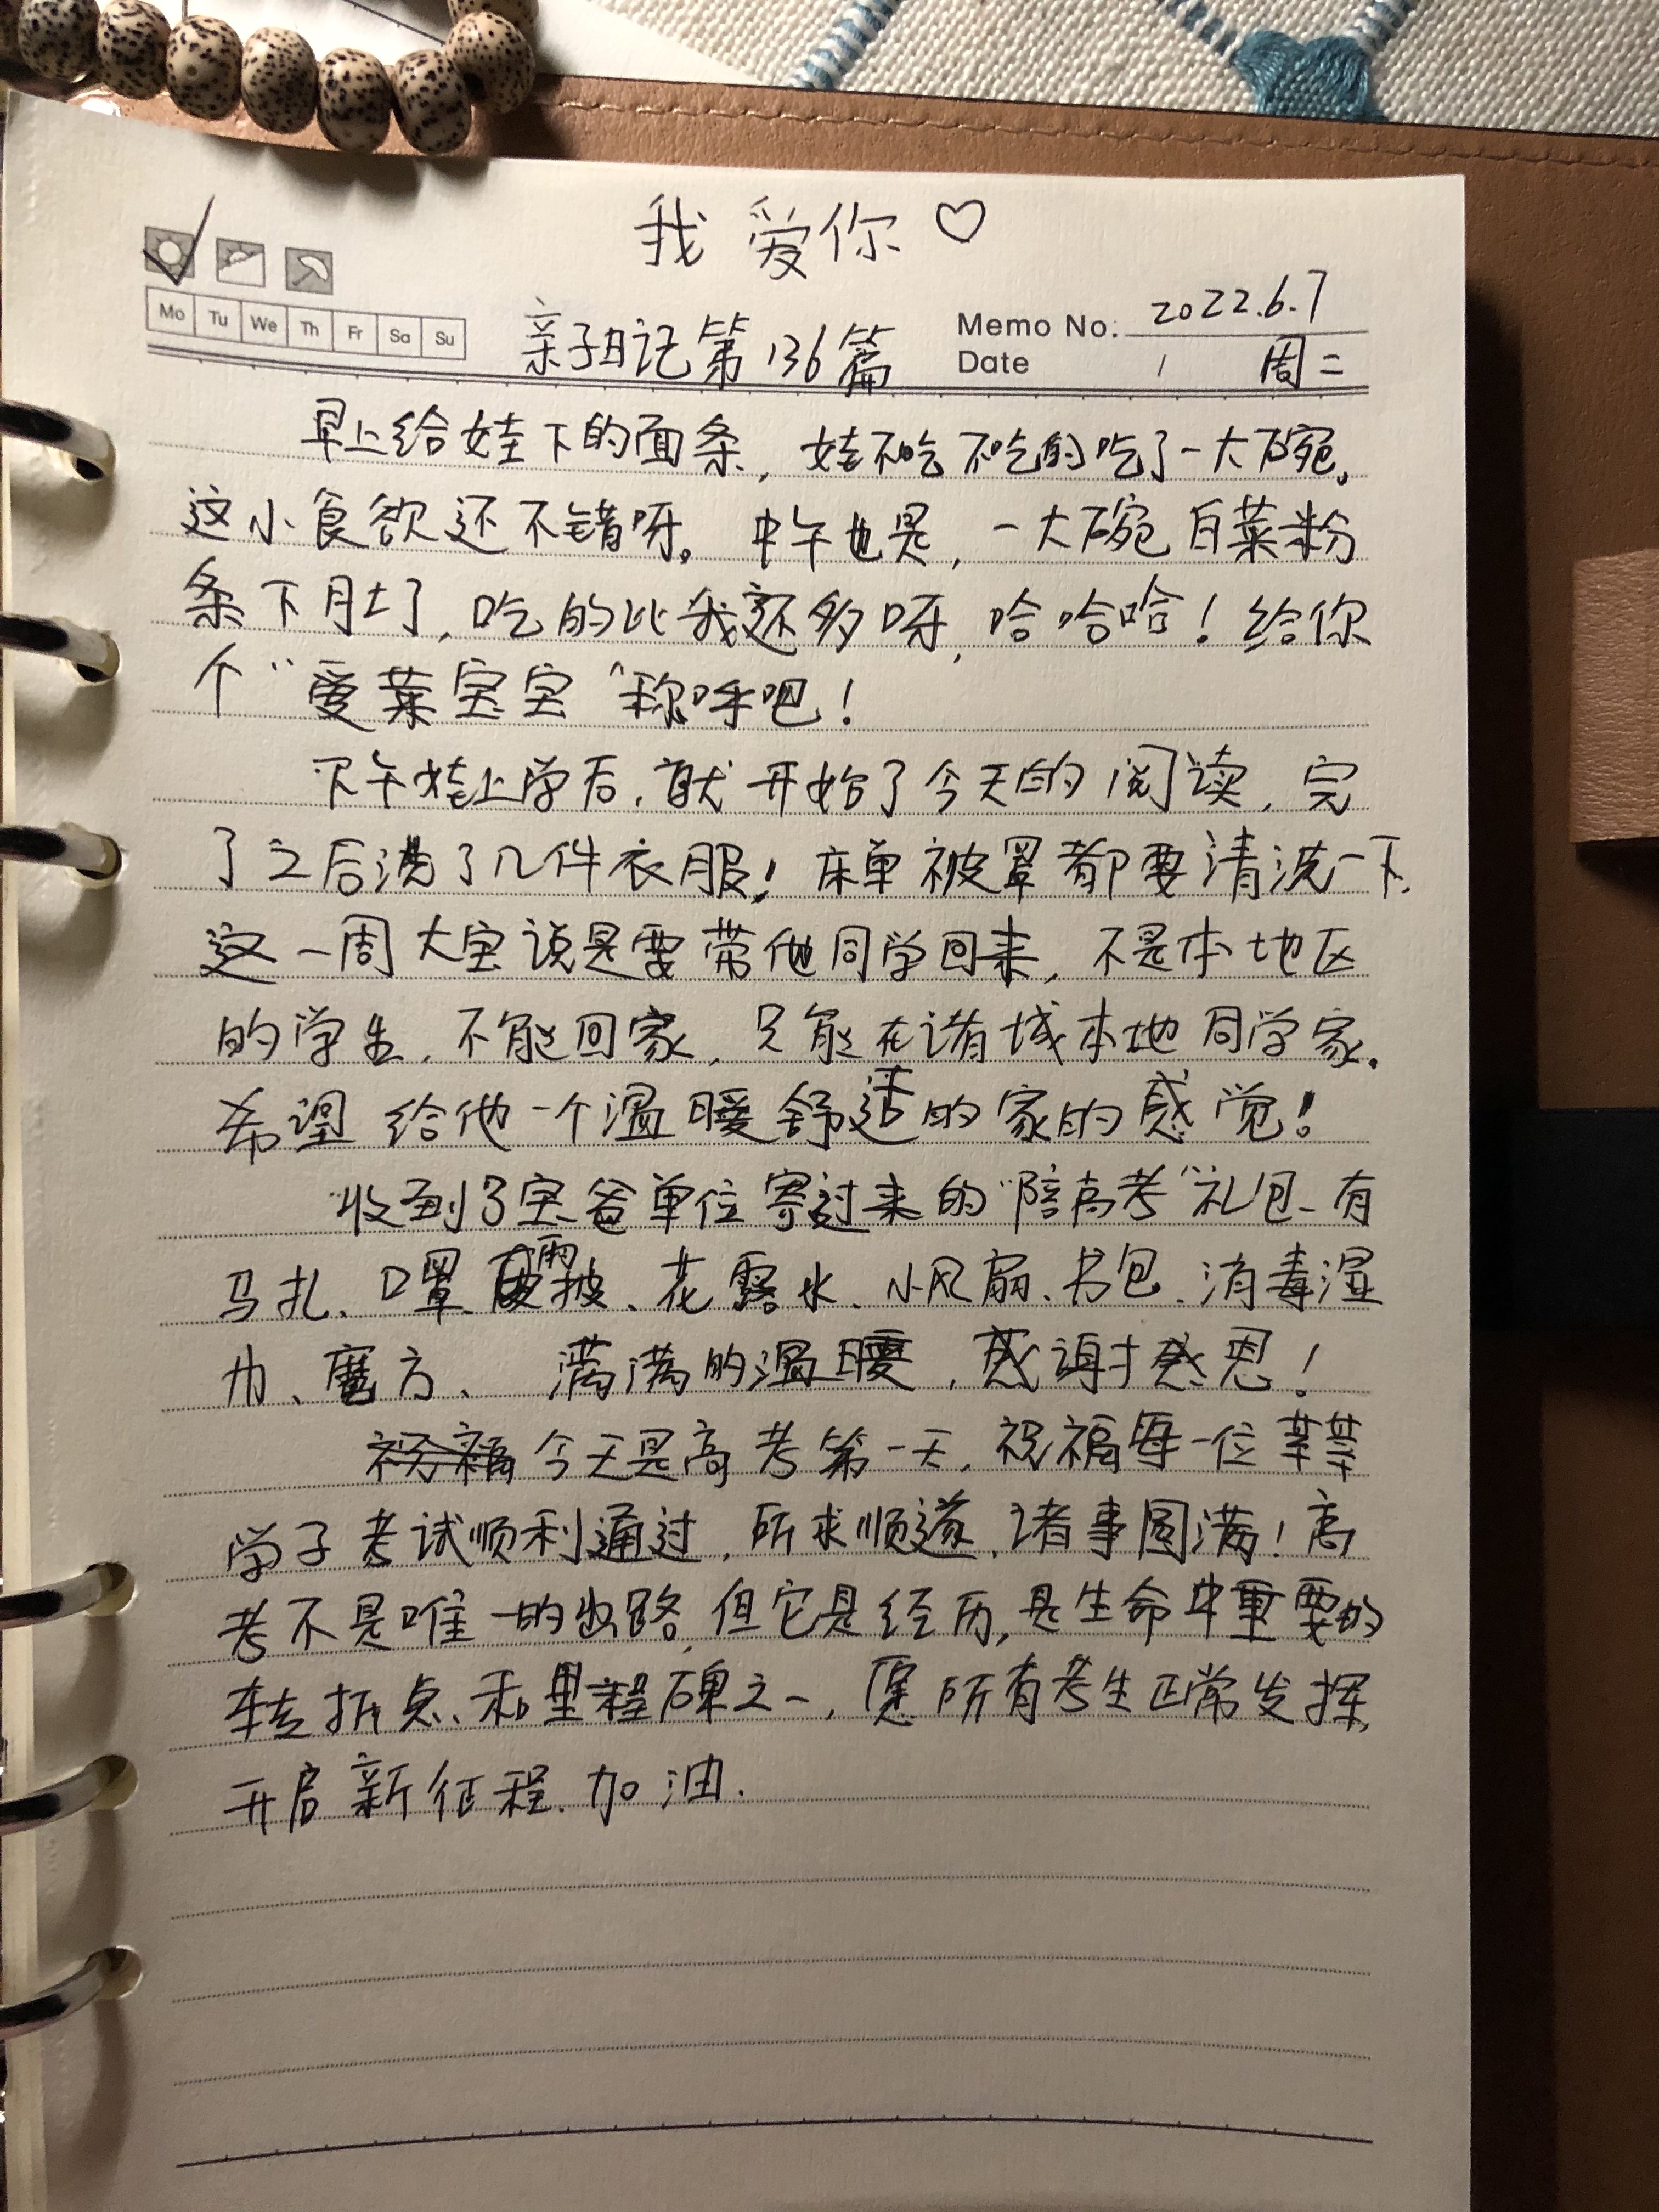 我爱你♡
Mo Tu We Th Fr Sa Su
亲子日记第136篇
Memo No. 2022.6.7
Date / 周二
早上给娃下的面条,娃不吃不吃的吃了一大碗。
这小食欲还不错呀。中午也是,一大碗白菜粉
条下肚了,吃的比我还多呀,哈哈哈!给你
个“爱菜宝宝”称呼吧!
下午娃上学后,就开始了今天的阅读,完
了之后洗了几件衣服!床单被罩都要清洗一下,
这一周大宝说是要带他同学回来,不是本地区
的学生,不能回家,只能在诸城本地同学家。
希望给他一个温暖舒适的家的感觉!
收到了宝爸单位寄过来的“陪高考”礼包、有
马扎、口罩、雨披、花露水、小风扇、书包、消毒湿
巾、魔方、满满的温暖,感谢感恩!
今天是高考第一天,祝福每一位莘莘
学子考试顺利通过,所求顺遂、诸事圆满!高
考不是唯一的出路,但它是经历,是生命中重要的
转折点、和里程碑之一,愿所有考生正常发挥,
开启新征程、加油.